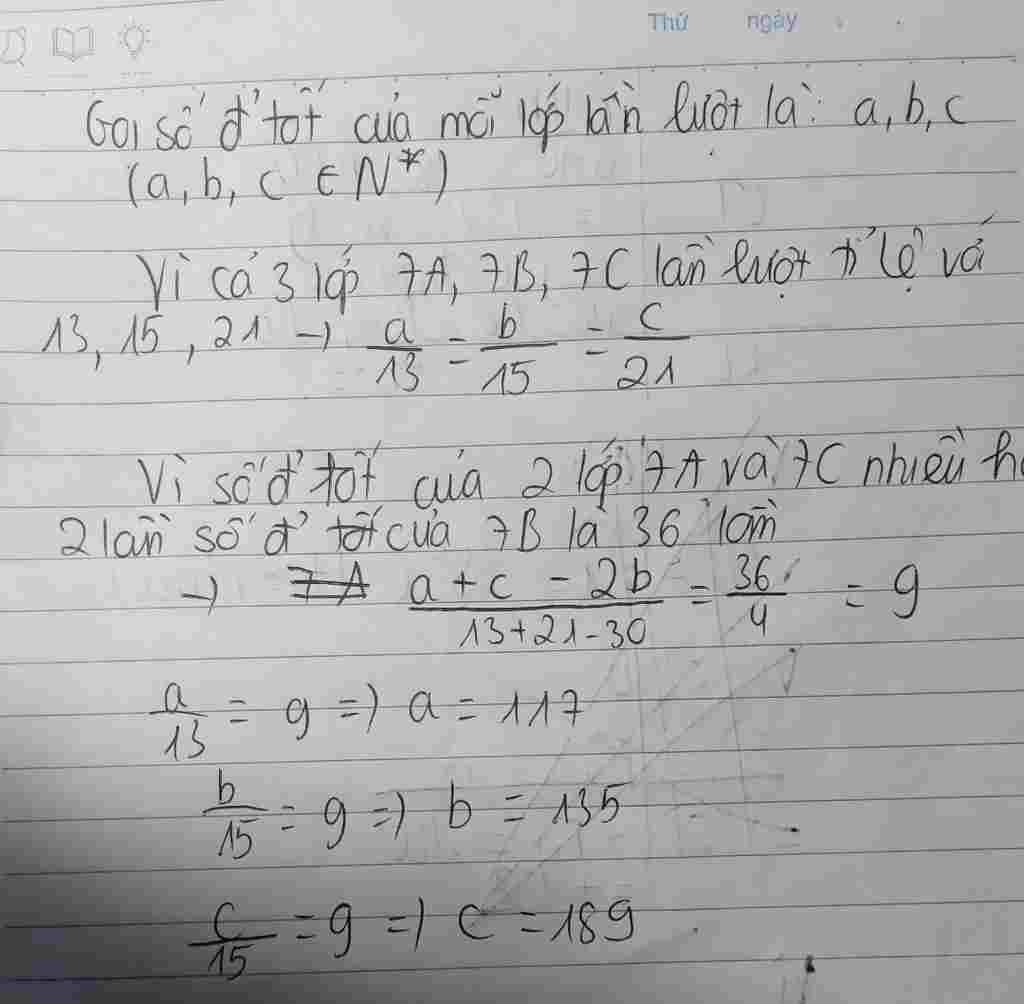 Thứ ngày
Gọi số đ' tốt của mỗi lớp lần lượt là: a, b, c
(a, b, c ∈ N*)
Vì cả 3 lớp 7A, 7B, 7C lần lượt tỉ lệ với
13, 15, 21 → a/13 = b/15 = c/21
Vì số đ' tốt của 2 lớp 7A và 7C nhiều h
2 lần số đ' tốt của 7B là 36
→ 7A (a + c - 2b)/(13+21-30) = 36/4 = 9
a/13 = 9 => a = 117
b/15 = 9 => b = 135
c/15 = 9 => c = 189